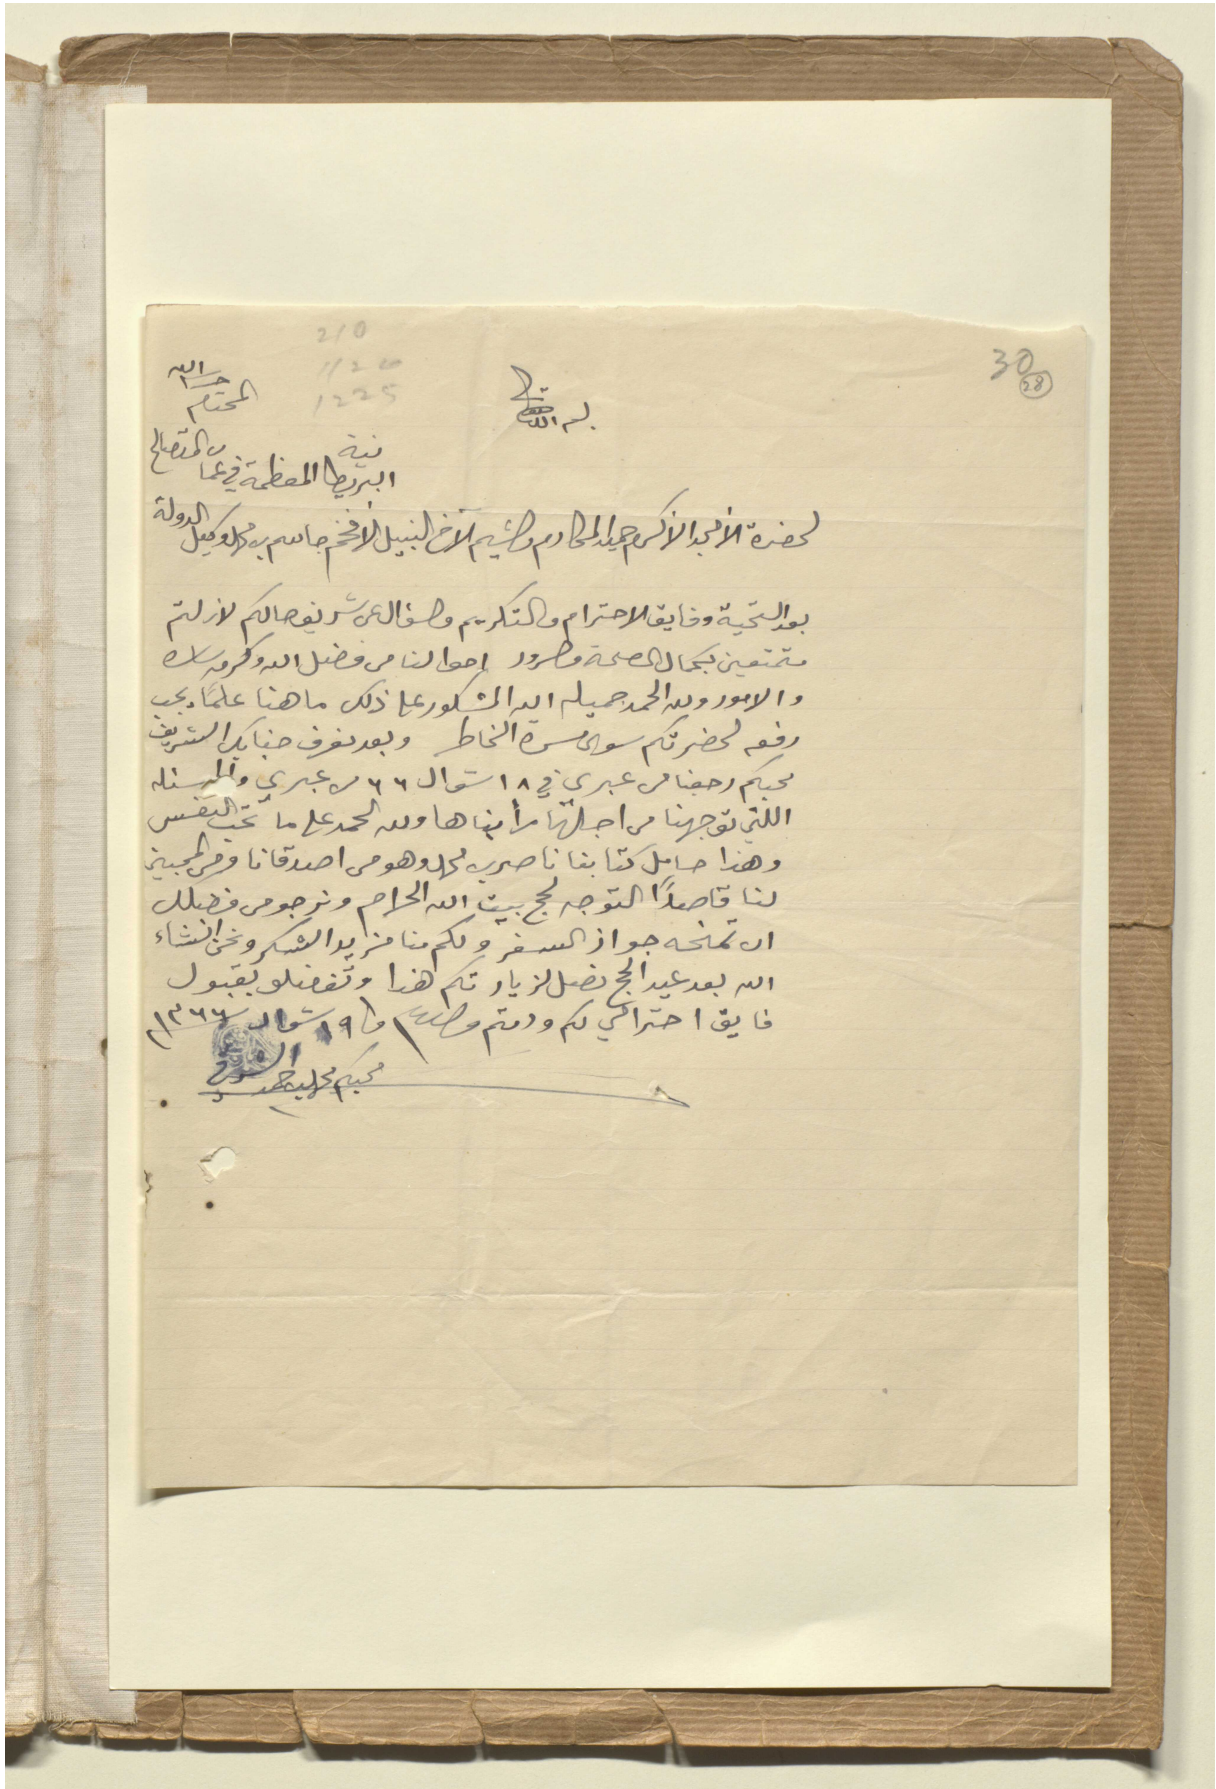 210
1120
1225
30
28
بسم الله
لحضرة الأمجد الأكرم حميد المكارم والشيم الأخ النبيل الأفخم جاسم بن محمد وكيل الدولة
البريطانية المعظمة في عمان المتصالح
المحترم
حرسه الله
بعد التحية وفايق الاحترام والتكريم والسؤال عن شريف حالكم لازلتم
متمتعين بكمال الصحة والسرور احوالنا من فضل الله وكرمه ساره
والامور ولله الحمد جميله الله المشكور على ذلك ما هنا علمًا يجب
رفعه لحضرتكم سوى مسرة الخاطر وبعد نعرف جنابك الشريف
محبكم رجعنا من عبري في ١٨ شوال ٦٦ من عبري والمسئله
اللتي توجهنا من اجلها رأيناها ولله الحمد على ما تحب النفس
وهذا حامل كتابنا ناصر بن محمد وهو من اصدقانا ومن المحبين
لنا قاصدًا التوجه لحج بيت الله الحرام ونرجو من فضلك
ان تمنحه جواز السفر ولكم منا مزيد الشكر ونحن انشاء
الله بعد عيد الحج نصل لزيارتكم هذا وتفضلو بقبول
فايق احترامي لكم ودمتم والسلام ١٩ شوال ١٣٦٦
محبكم محمد بن احمد